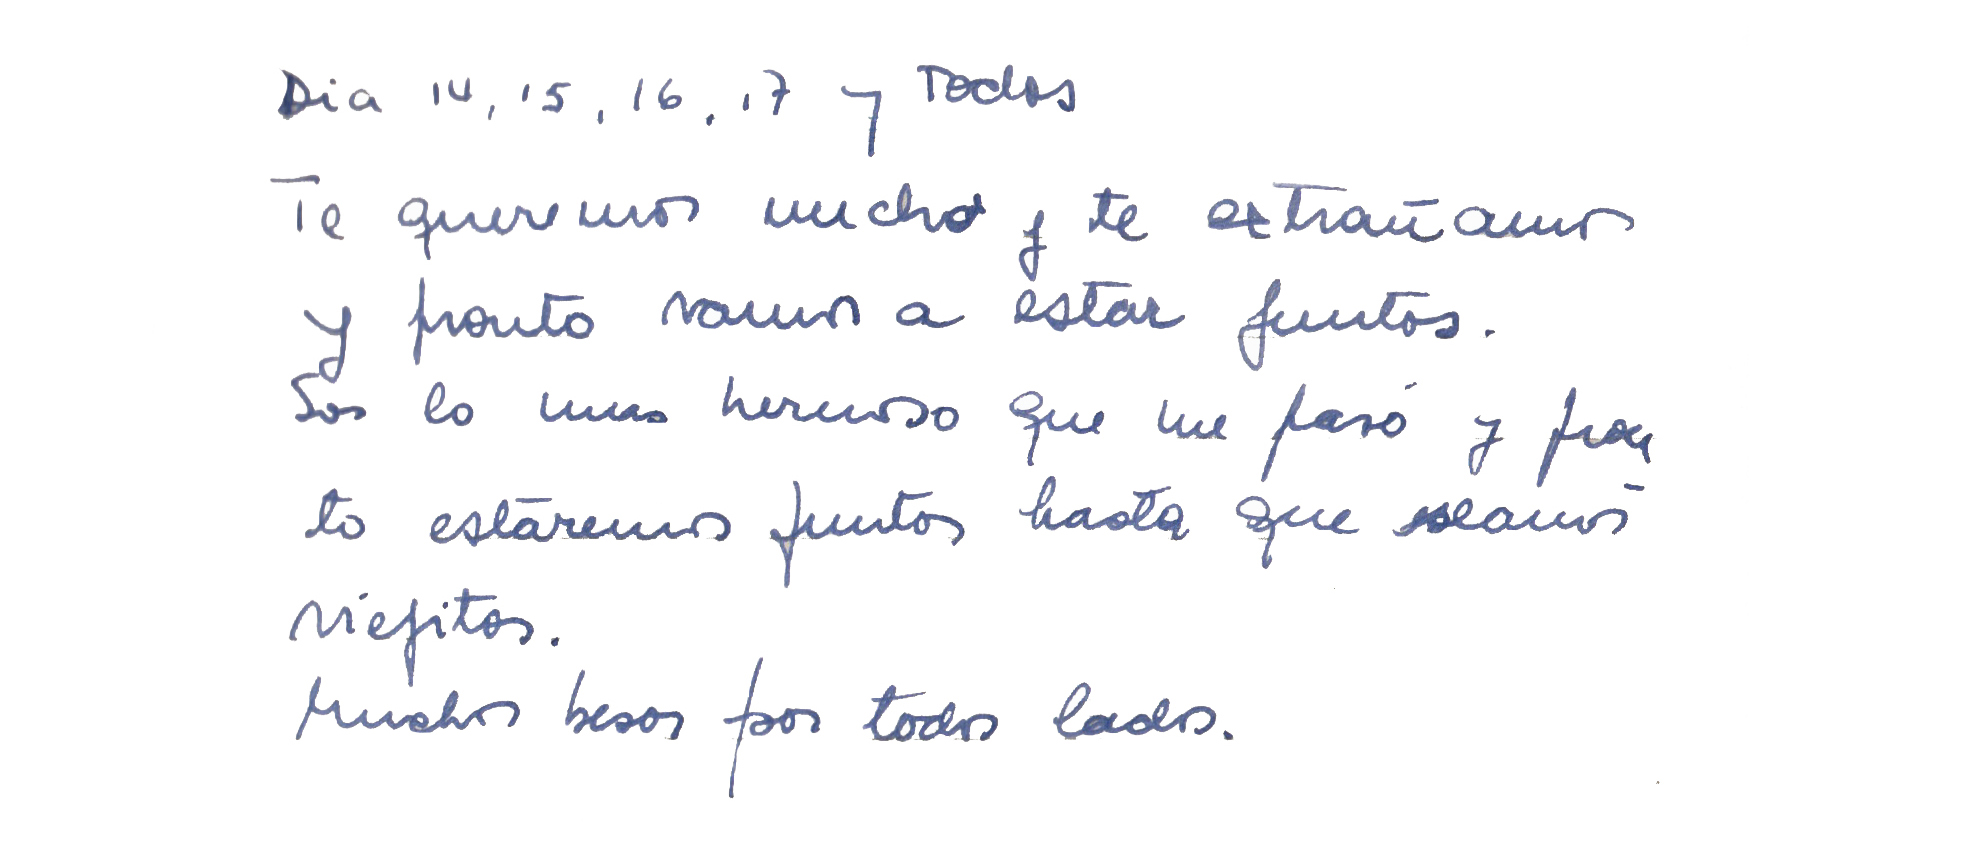 Dia 14, 15, 16, 17 y Todos
Te queremos mucho y te extrañamos
y pronto vamos a estar juntos.
Sos lo mas hermoso que me pasó y pron
to estaremos juntos hasta que seamos
viejitos.
Muchos besos por todos lados.